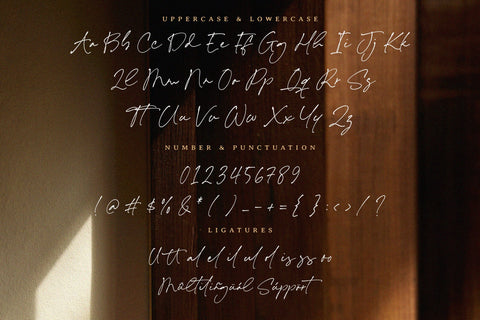 UPPERCASE & LOWERCASE
Aa Bb Cc Dd Ee Ff Gg Hh Ii Jj Kk
Ll Mm Nn Oo Pp Qq Rr Ss
Tt Uu Vv Ww Xx Yy Zz
NUMBER & PUNCTUATION
0123456789
! @ # $ % & * ( ) _ - + = { } : < > / ?
LIGATURES
Utt al el il ul ol is ss oo
Multilingual Support